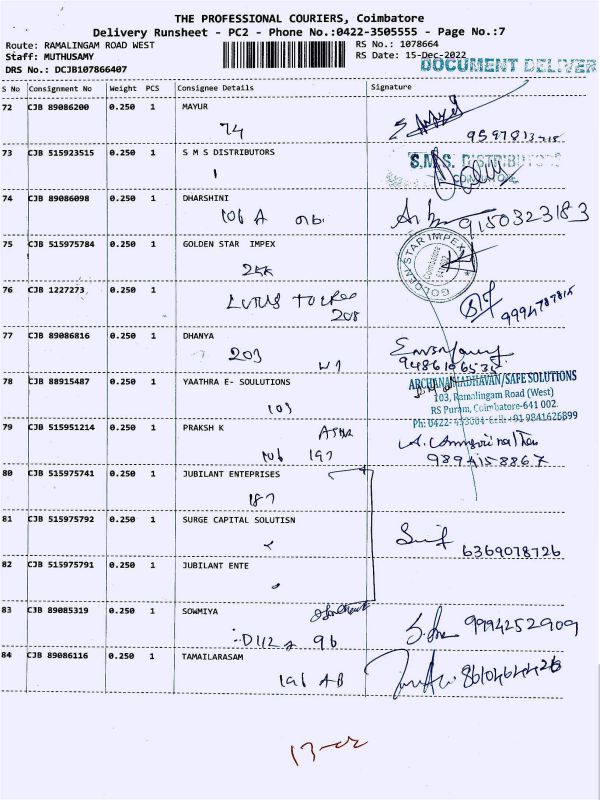 THE PROFESSIONAL COURIERS, Coimbatore
Delivery Runsheet - PC2 - Phone No.:0422-3505555 - Page No.:7
Route: RAMALINGAM ROAD WEST RS No.: 1078664
Staff: MUTHUSAMY RS Date: 15-Dec-2022
DOCUMENT DELIVER
DRS No.: DCJB107866407
S No Consignment No Weight PCS Consignee Details Signature
72 CJB 89086200 0.250 1 MAYUR
74
73 CJB 515923515 0.250 1 S M S DISTRIBUTORS
S.M.S. DISTRIBUTORS
1 COIMBATORE
74 CJB 89086098 0.250 1 DHARSHINI
106 A 9150323183
75 CJB 515975784 0.250 1 GOLDEN STAR IMPEX
GOLDEN STAR IMPEX
Coimbatore
76 CJB 1227273 0.250 1
208 9994787815
77 CJB 89086816 0.250 1 DHANYA
203 9486106535
78 CJB 88915487 0.250 1 YAATHRA E- SOULUTIONS
ARCHANA MADHAVAN/SAFE SOLUTIONS
103, Ramalingam Road (West)
RS Puram, Coimbatore-641 002.
Cell: +91 9841626899
103
79 CJB 515951214 0.250 1 PRAKSH K
106 197 9894158867
80 CJB 515975741 0.250 1 JUBILANT ENTEPRISES
187
81 CJB 515975792 0.250 1 SURGE CAPITAL SOLUTISN
6369078726
82 CJB 515975791 0.250 1 JUBILANT ENTE
83 CJB 89085319 0.250 1 SOWMIYA
96 9994252909
84 CJB 89086116 0.250 1 TAMAILARASAM
191 AB 8610464426